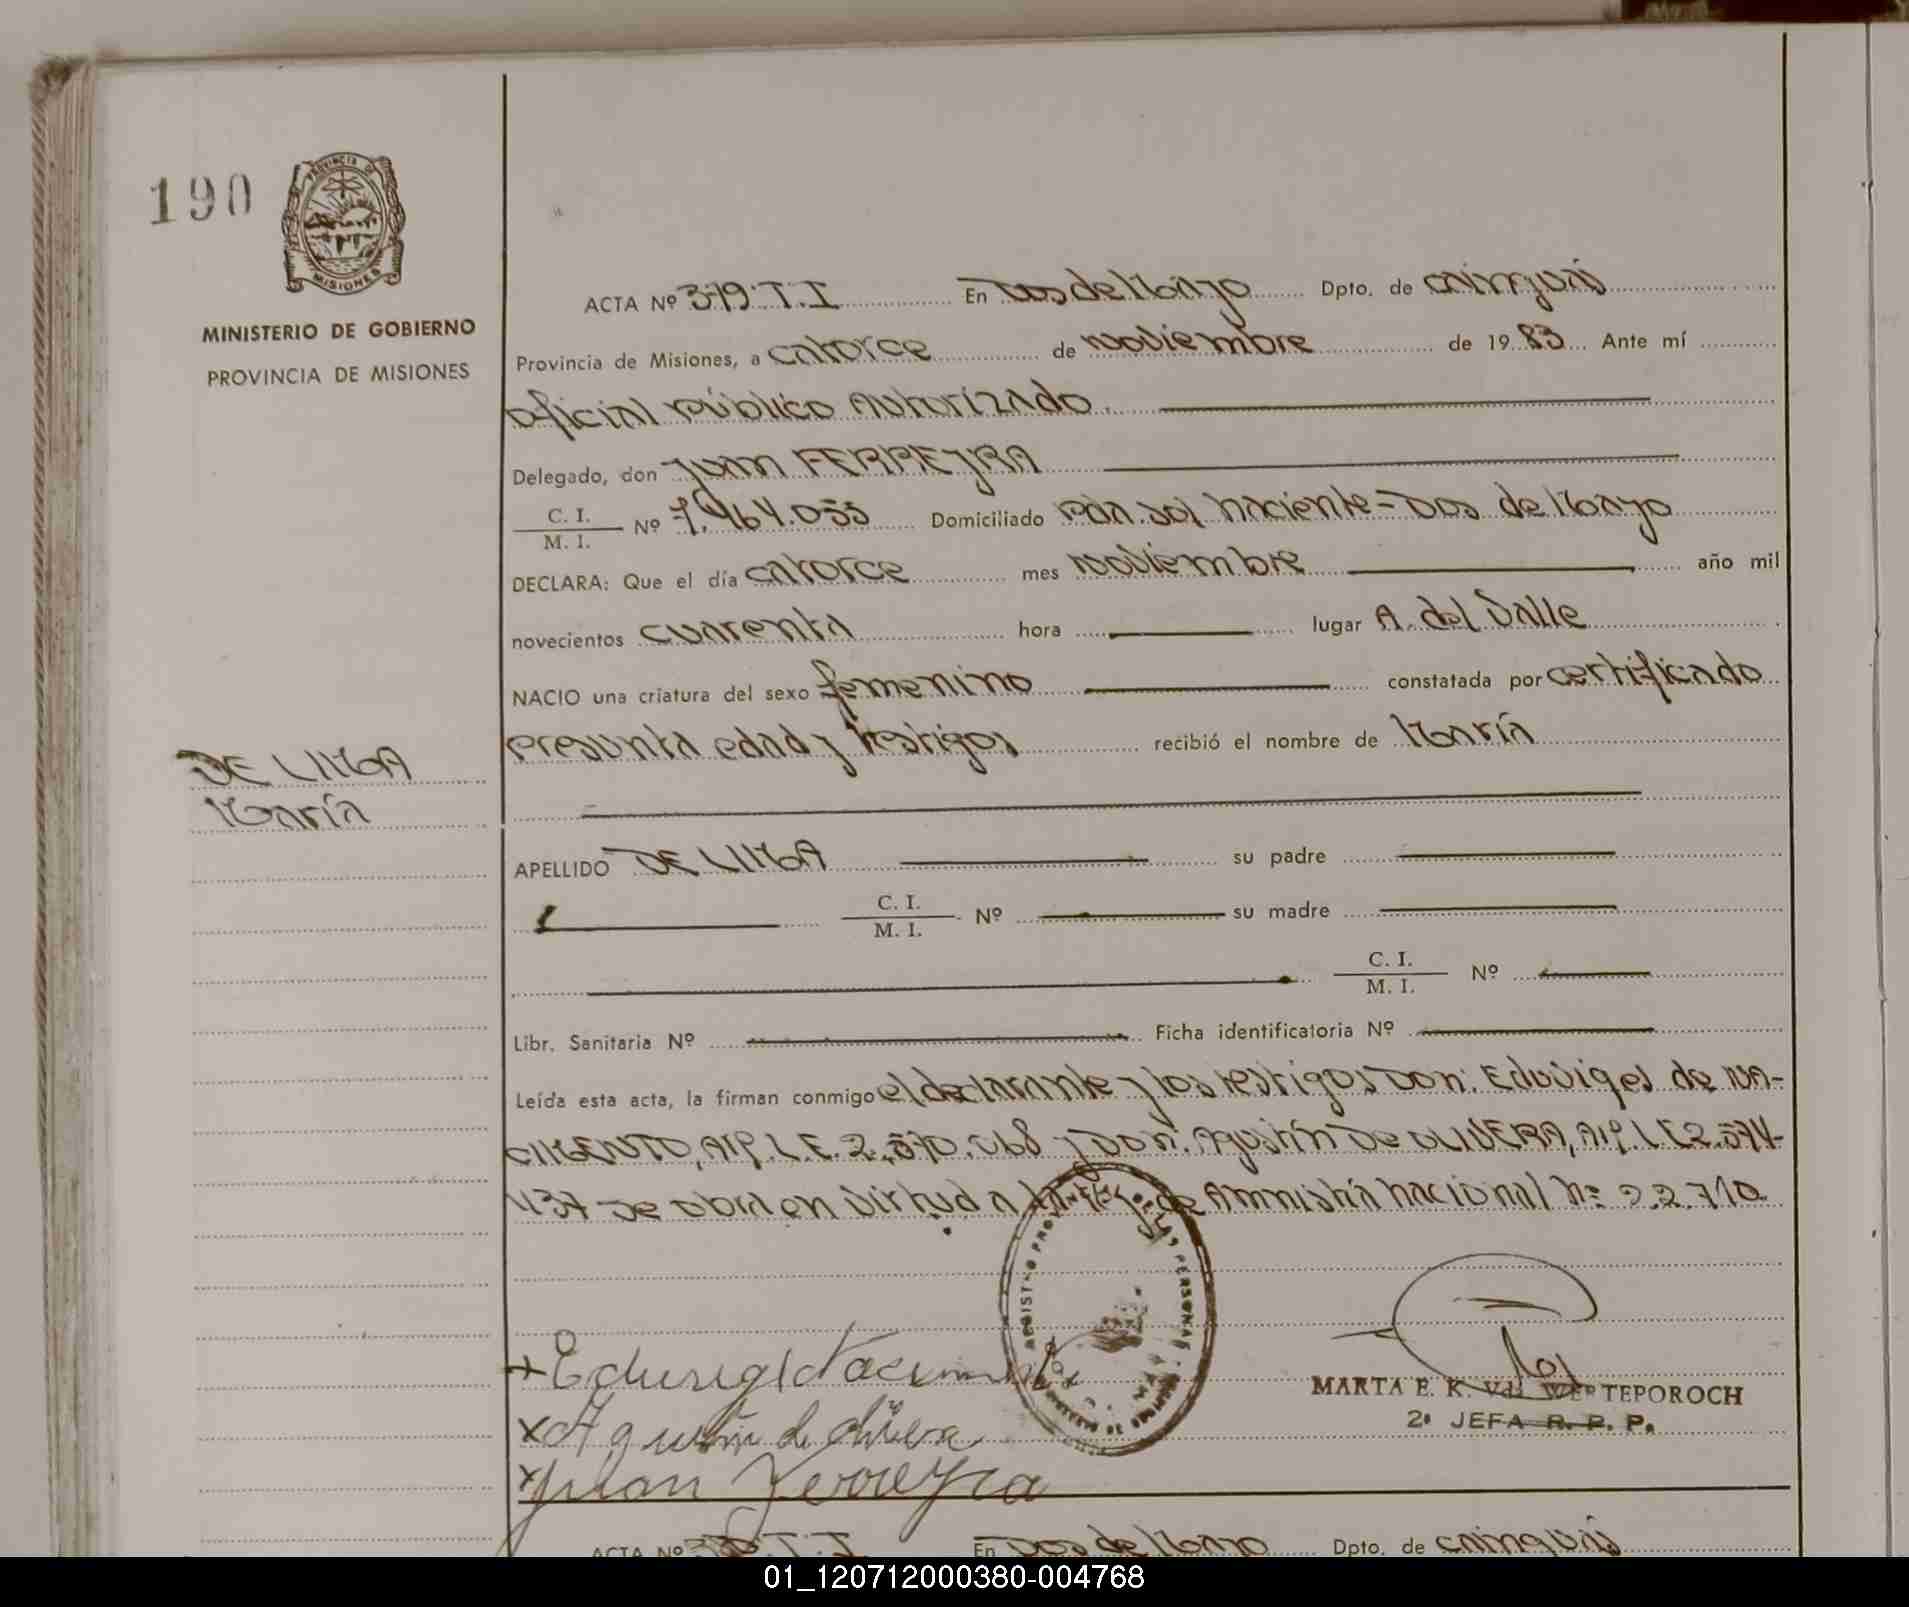 190
PROVINCIA DE
MISIONES
MINISTERIO DE GOBIERNO
PROVINCIA DE MISIONES
DE LIMA
María
ACTA Nº 379. T. I En Dos de Mayo Dpto. de Cainguás
Provincia de Misiones, a catorce de noviembre de 1983 Ante mí
oficial público Autorizado.
Delegado, don Juan FERREYRA
C. I.
M. I. Nº 7.464.055 Domiciliado Pda. Sol Naciente - Dos de Mayo
DECLARA: Que el día catorce mes noviembre año mil
novecientos cuarenta hora lugar A. del Valle
NACIO una criatura del sexo femenino constatada por certificado
presunta edad y testigos recibió el nombre de María
APELLIDO DE LIMA su padre
C. I.
M. I. Nº su madre
C. I.
M. I. Nº
Libr. Sanitaria Nº Ficha identificatoria Nº
Leída esta acta, la firman conmigo el declarante y los testigos Don: Eduviges de NA-
CIMENTO, M.I.L.E. 2.570.068 y Don: Agustín DE OLIVEIRA, M.I. L.E 2.574-
437 Se obra en virtud a la Ley de Amnistía nacional Nº 22.710
Agustin de Olivera
Juan Ferreyra
MARTA E. K. WERTEPOROCH
2ª JEFA R. P. P.
ACTA Nº T. I En Dos de Mayo Dpto. de Cainguás
01_120712000380-004768